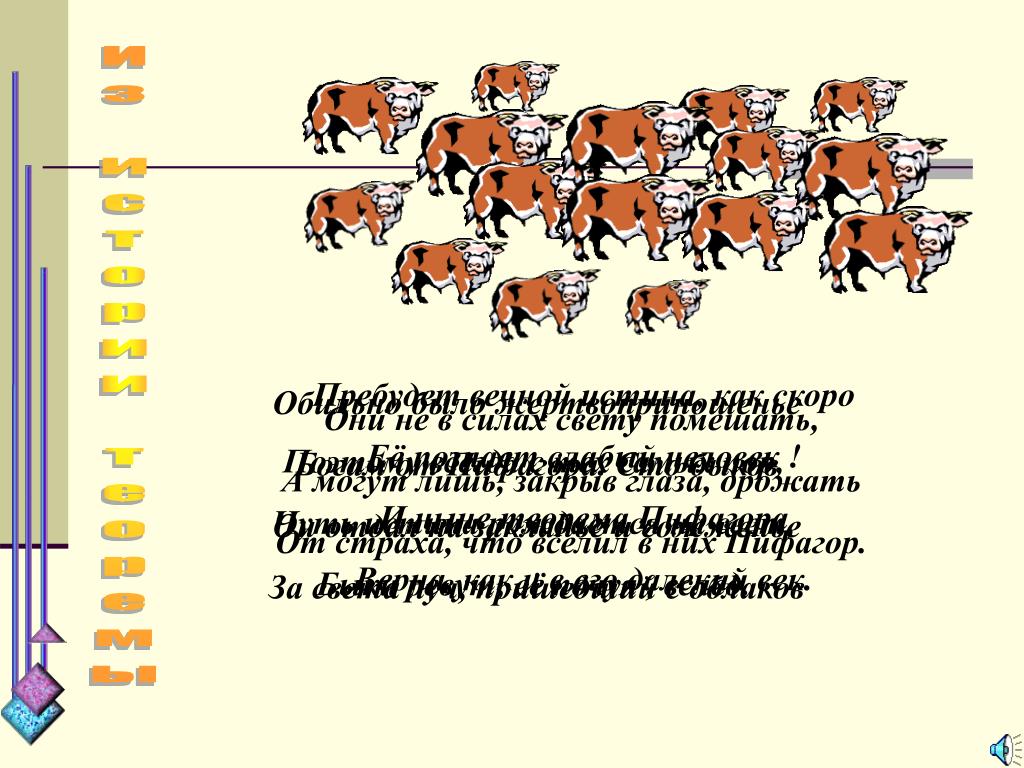 из истории теоремы
Пребудет вечной истина, как скоро
Её познает слабый человек !
И ныне теорема Пифагора
Верна, как и в его далекий век.
Обильно было жертвоприношенье
Богам от Пифагора. Сто быков
Он отдал на закланье и сожженье
За света луч, пришедший с облаков
Они не в силах свету помешать,
А могут лишь, закрыв глаза, дрожать
От страха, что вселил в них Пифагор.